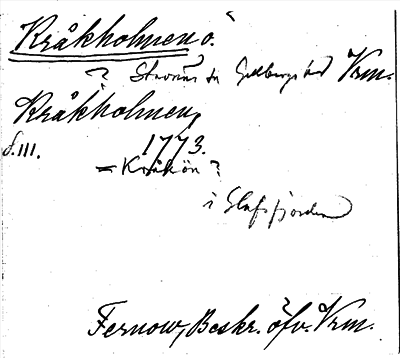 Kråkholmen ö.
? Stavnäs sn Gillbergs hd Vrm.
Kråkholmen,
s. 111. 1773.
= Kråkön ?
i Glafsfjorden
Fernow, Beskr. öfv. Vrm.